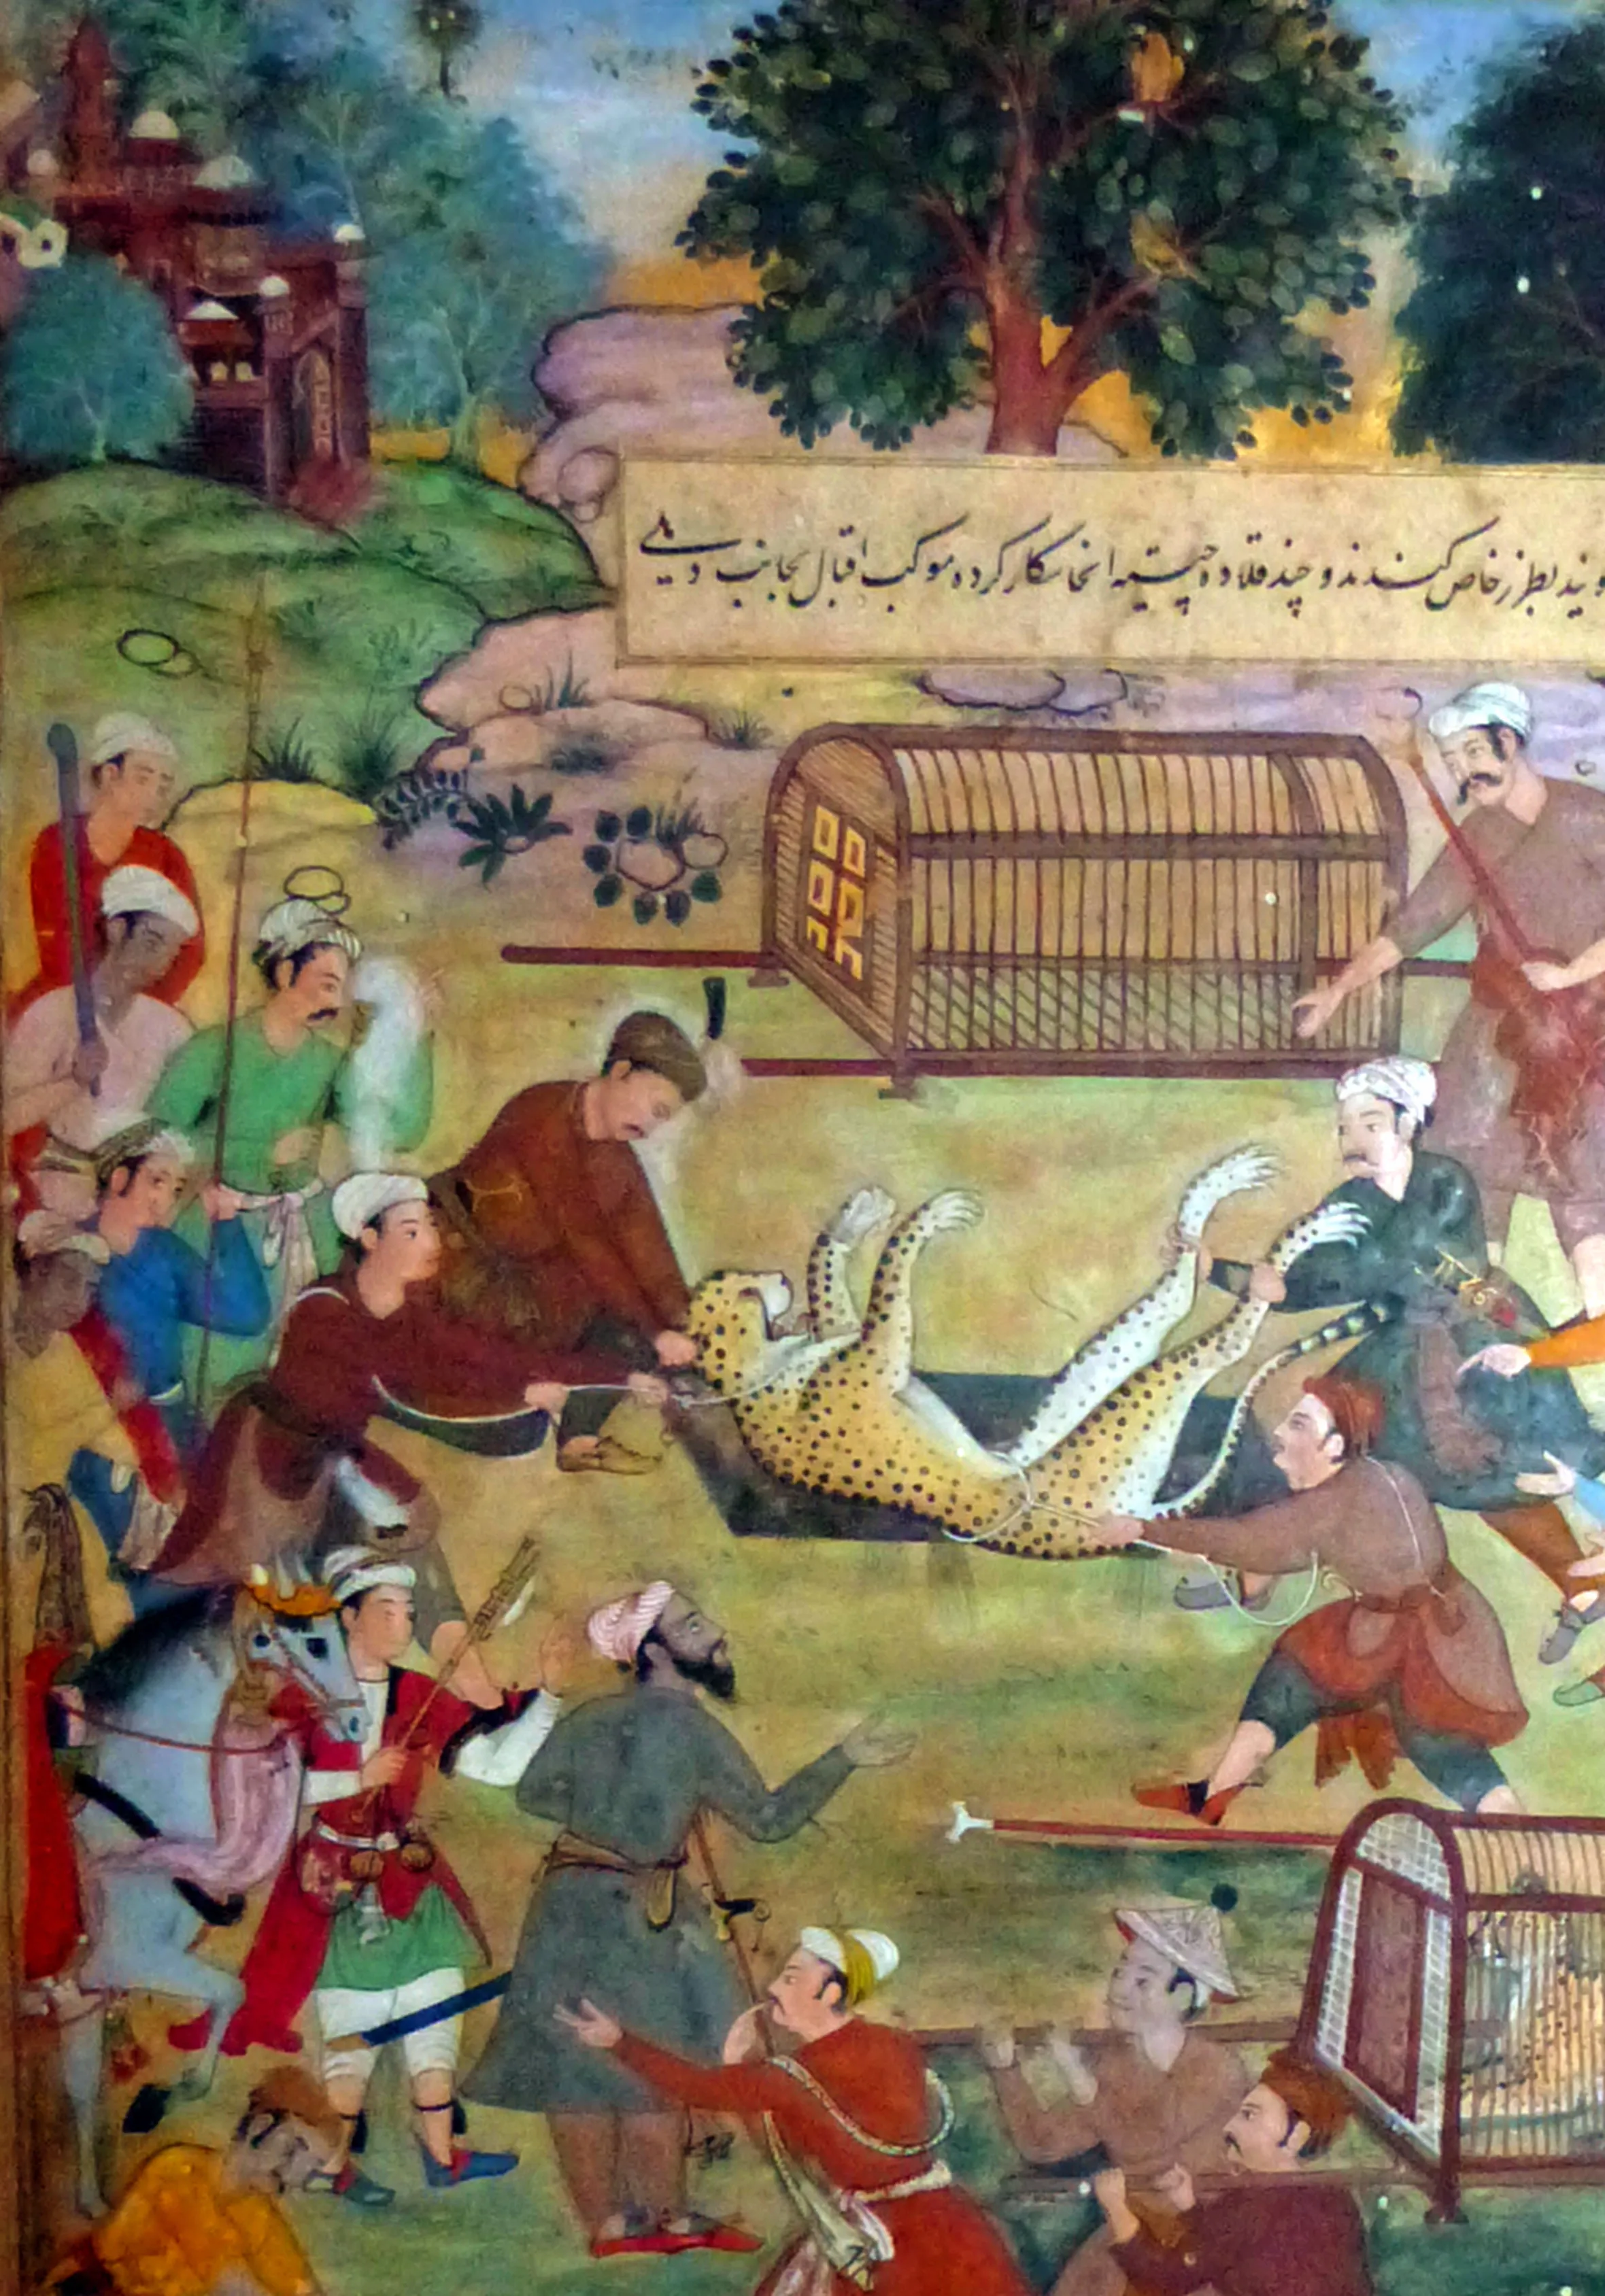 وید بطرز خاص کنند و چند قلاده چیته انجا شکار کرده موکب اقبال بجانب دهلی